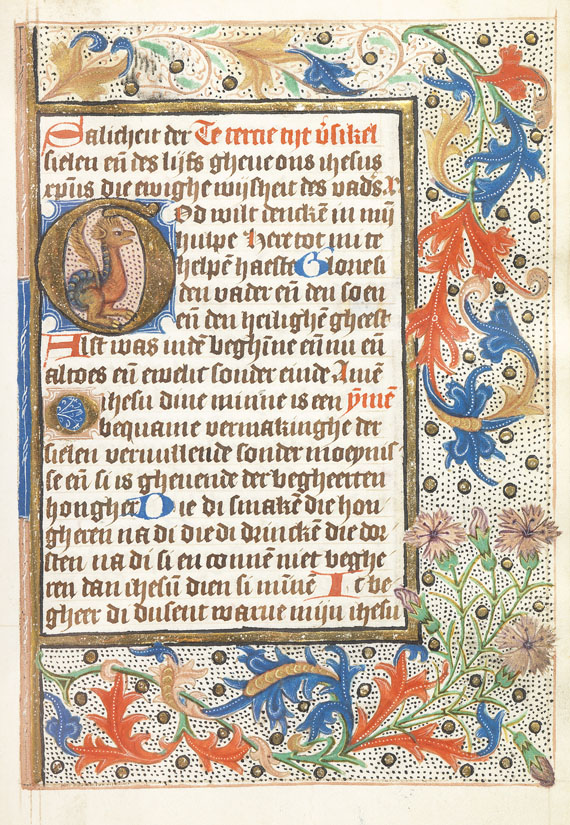 Salicheit der Te tercie tijt v̉sikel
sielen en̄ des lijfs gheue ons ihesus
xpūs die ewighe wijsheit des vads̉ x̉
God wilt dencke̅ in mij
hulpe Here tot mi te
helpe̅ haeste Glorie si
den vader en̄ den soen
en̄ den heilighe̅ gheest
Alst was inde̅ beghi̅ne en̄ nu en̄
altoes en̄ ewelic sonder einde Ame̅
Ihesu dine minne is een ẏmē
bequame vermakinghe der
sielen veruullende sonder moeynis
se en̄ si is gheuende der begheerten
hongher Die di smake̅ die hon
gheren na di die di drincke̅ die dor
sten na di si en conne̅ niet beghe
ren dan ihesu̅ dien si mi̅ne̅ Ic be
gheer di dusent warue mijn ihesu